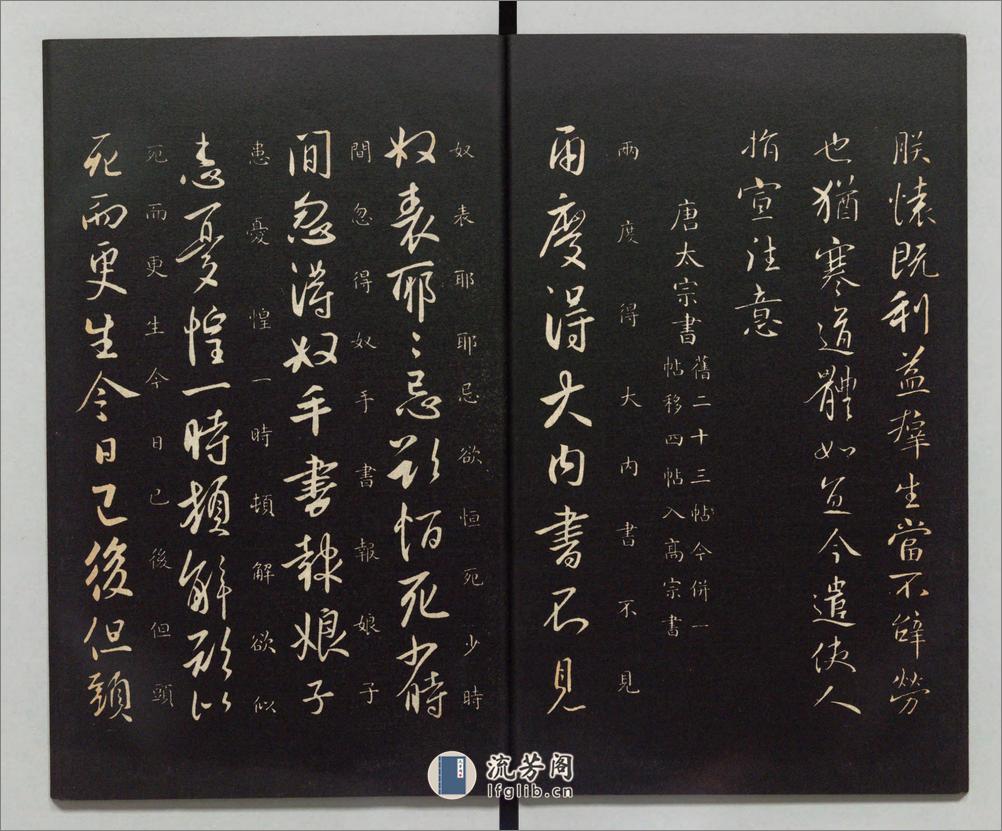 朕懷既利益群生當不辭勞
也猶寒道體如宜今遣使人
指宣往意
唐太宗書
舊二十三帖今併一
帖移四帖入高宗書
兩度得大內書不見
兩度得大內書不見
奴表耶耶忌欲恒死少時
奴表耶〻忌欲恒死少時
間忽得奴手書報娘子
間忽得奴手書報娘子
患憂惶一時頓解欲似
恚憂惶一時頓解欲似
死而更生今日已後但頭
死而更生今日已後但頭
流芳阁
lfglib.cn